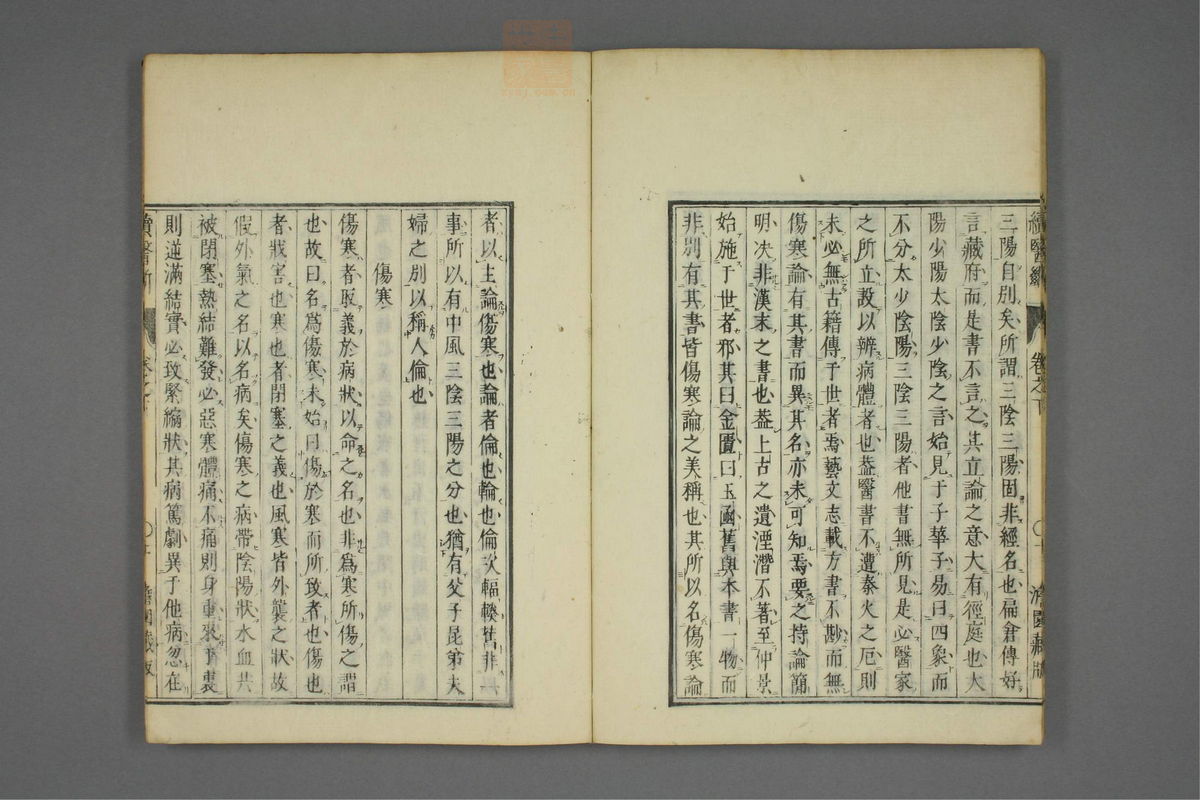 三陽自別矣所謂三陰三陽固非經名也扁倉傳好
言藏府而是書不言之其立論之意大有徑庭也大
陽少陽太陰少陰之言始見于子華子易曰四象而
不分太少陰陽三陰三陽者他書無所見是必醫家
之所立設以辨病體者也蓋醫書不遭秦火之厄則
未必無古籍傳于世者焉藝文志載方書不尠而無
傷寒論有其書而異其名亦未可知焉要之持論簡
明決非漢末之書也蓋上古之遺湮潛不著至仲景
始施于世者邪其曰金匱曰玉函舊與本書一物而
非別有其書皆傷寒論之美稱也其所以名傷寒論
者以主論傷寒也論者倫也輪也倫次輻輳皆非
事所以有中風三陰三陽之分也猶有父子昆弟夫
婦之別以稱人倫也
傷寒
傷寒者取義於病狀以命之名也非爲寒所傷之謂
也故曰名爲傷寒未始曰傷於寒而所致者也傷也
者戕害也寒也者閉塞之義也風寒皆外襲之狀故
假外氣之名以名病矣傷寒之病帶陰陽狀水血共
被閉塞熱結難發必惡寒體痛不痛則身重衆于裏
則逆滿結實必致緊縮狀其病篤劇異于他病忽在
續醫斷
卷之下
濟國藏版